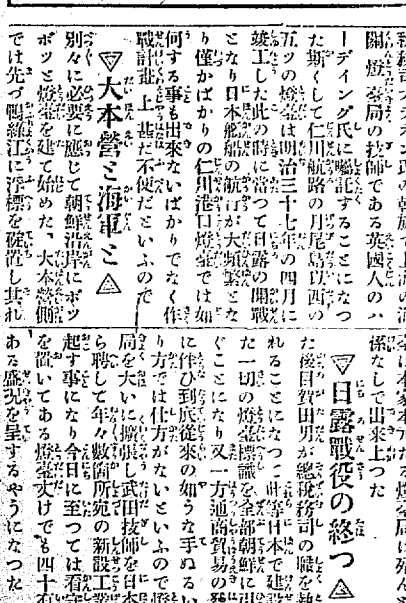 關、燈臺局の技師である英國人のハ
ーデイング氏に囑託することになつ
た斯くして仁川航路の月尾島以西の
五ツの燈臺は明治三十七年の四月に
竣工した此の時に當つて日露の開戰
となり日本艦船の航行が大頻繁とな
り僅かばかりの仁川港口燈臺では如
何する事も出來ないばかりでなく作
戰計畫上甚だ不便だといふので
▽大本營と海軍と△
別々に必要に應じて朝鮮沿岸にボツ
ボツと燈臺を建て始めた、大本營側
では先づ鴨綠江に浮標を設置し其れ
係なしで出來上つた
▽日露戰役の終つ△
た後目賀田男が總稅務司の職を
れることになつて 等日本で建
た一切の燈臺標識を全部朝鮮に引
ぐことになり又一方通商貿易の發
に伴ひ到底從來の如うな手ぬるい
り方では仕方がないといふので燈
局を大いに擴張し武田技師を日本
ら聘して年々數箇所宛の新設工
起す事になり今日に至つては看守
を置いてある燈臺丈けでも四十
ある盛況を呈するやうになつた